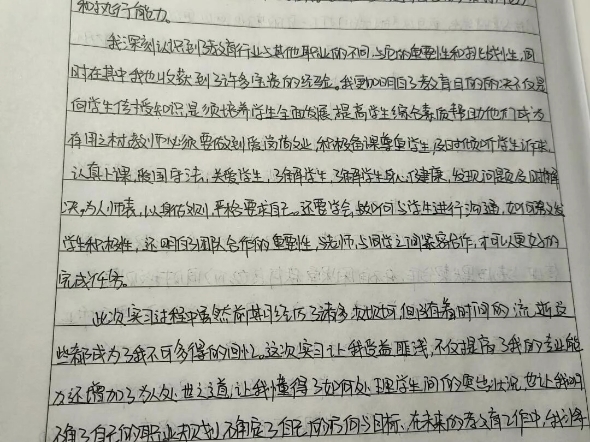 和执行能力。
我深刻认识到了教育行业与其他职业的不同,与它的重要性和挑战性,同
时在其中我也收获到了许多宝贵的经验。我更加明白了教育目的的决不仅是
向学生传授知识,是须培养学生全面发展,提高学生综合素质,帮助他们成为
有用之材,教师必须要做到爱岗敬业,积极备课尊重学生,及时倾听学生诉求,
认真上课,爱国守法,关爱学生,了解学生,了解学生身心健康,发现问题及时解
决,为人师表,以身作则,严格要求自己。还要学会如何与学生进行沟通,如何激发
学生积极性,还明白了团队合作的重要性,与老师,与同学之间紧密合作,才可以更好的
完成任务。
此次实习过程中虽然前期经历了诸多次坎坷,但随着时间的流逝这
些都成为了我不可多得的回忆。这次实习让我受益匪浅,不仅提高了我的专业能
力还增加了为人处世之道,让我懂得了如何处理学生间的突发状况,也让我明
确了自己的职业规划,确定了自己的方向与目标,在未来的教育工作中,我将